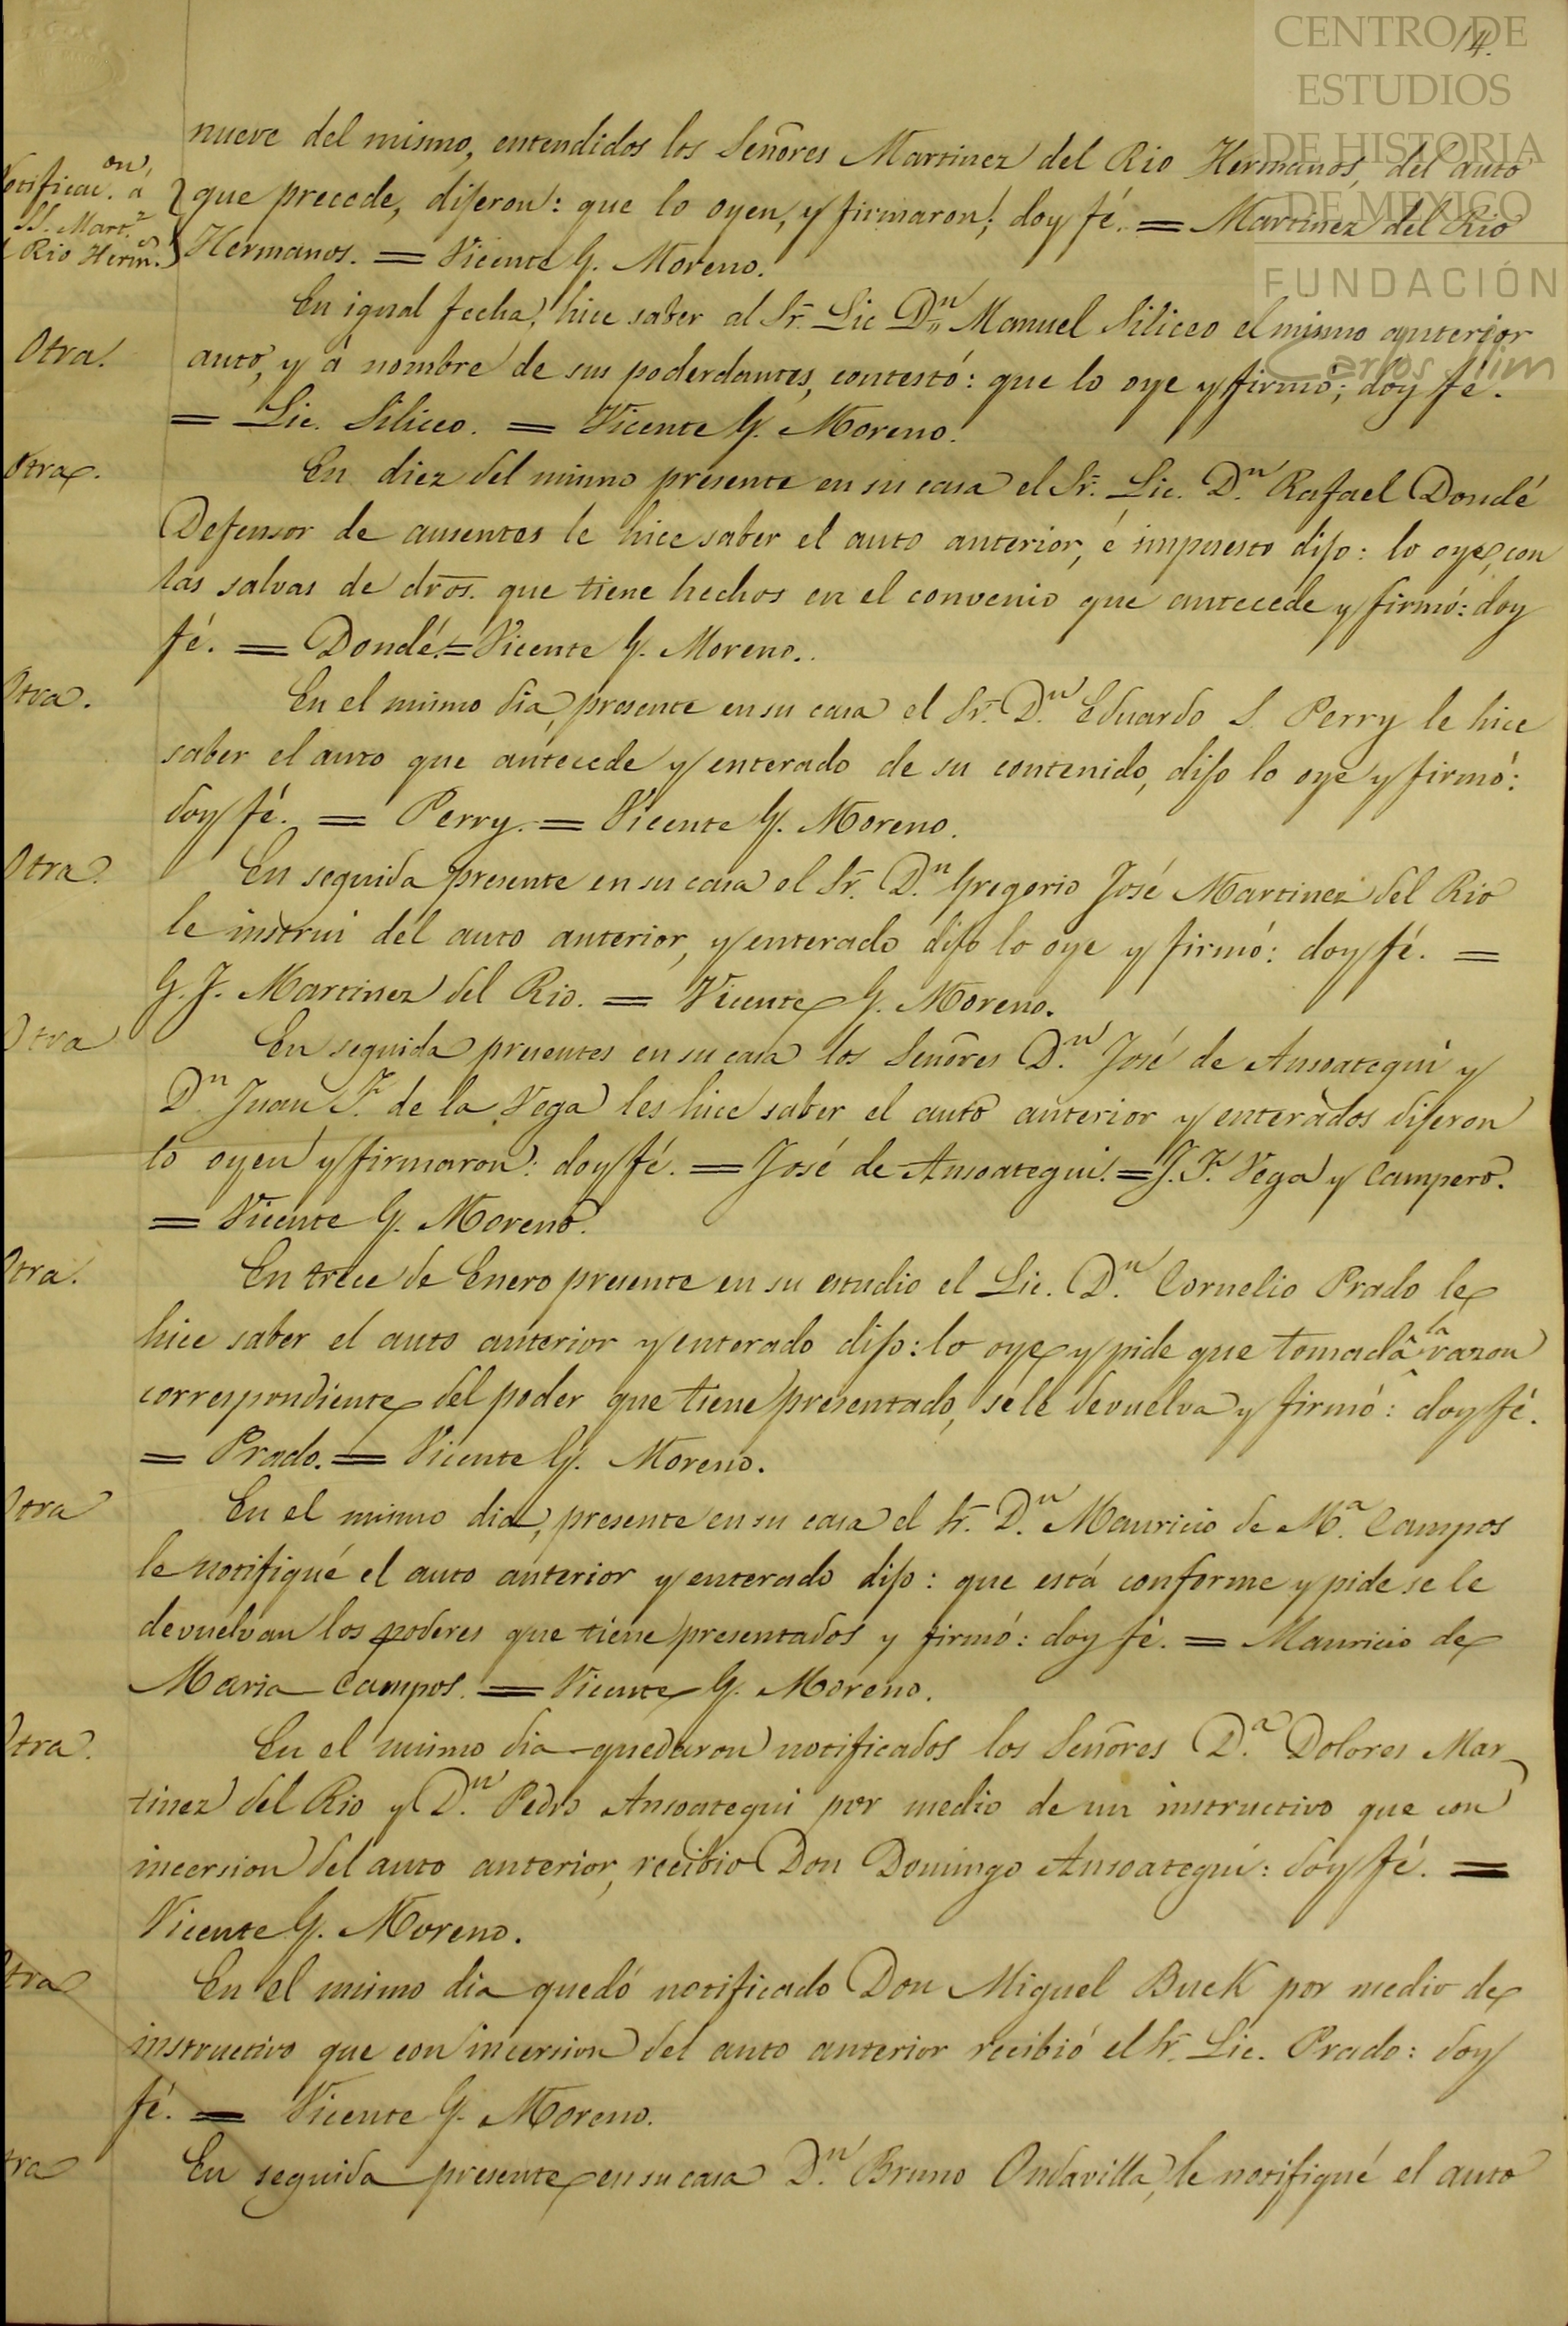 CENTRO DE
ESTUDIOS
DE HISTORIA
DE MÉXICO
FUNDACIÓN
Carlos Slim
14.
nueve del mismo, entendidos los Señores Martinez del Rio Hermanos, del auto
Notificac.on á
SS. Mart.z
l Rio Herm.s
que precede, dijeron: que lo oyen, y firmaron; doy fé. = Martinez del Rio
Hermanos. = Vicente G. Moreno.
Otra.
En igual fecha, hice saber al Sr. Lic Dn Manuel Siliceo el mismo anterior
auto, y á nombre de sus poderdantes, contestó: que lo oye y firmó; doy fé.
= Lic. Siliceo. = Vicente G. Moreno.
Otra.
En diez del mismo presente en su casa el Sr. Lic. D.n Rafael Dondé
Defensor de ausentes le hice saber el auto anterior, é impuesto dijo: lo oye, con
las salvas de dros. que tiene hechos en el convenio que antecede y firmó: doy
fé. = Dondé. = Vicente G. Moreno.
Otra.
En el mismo dia, presente en su casa el Sr. D.n Eduardo S. Perry le hice
saber el auto que antecede y enterado de su contenido, dijo lo oye y firmó:
doy fé. = Perry. = Vicente G. Moreno.
Otra.
En seguida presente en su casa el Sr. D.n Gregorio José Martinez del Rio
le instrui del auto anterior, y enterado dijo lo oye y firmó: doy fé. =
G. J. Martinez del Rio. = Vicente G. Moreno.
Otra
En seguida presentes en su casa los Señores D.n José de Ansoategui y
D.n Juan F. de la Vega les hice saber el auto anterior y enterados dijeron
lo oyen y firmaron: doy fé. = José de Ansoategui. = J. F. Vega y Campero.
= Vicente G. Moreno.
Otra.
En trece de Enero presente en su estudio el Lic. D.n Cornelio Prado le
hice saber el auto anterior y enterado dijo: lo oye y pide que tomada la razon
correspondiente del poder que tiene presentado, se le devuelva y firmó: doy fé.
= Prado. = Vicente G. Moreno.
Otra
En el mismo dia, presente en su casa el Sr. D.n Mauricio de M.a Campos
le notifiqué el auto anterior y enterado dijo: que está conforme y pide se le
devuelvan los poderes que tiene presentados y firmó: doy fé. = Mauricio de
Maria Campos. = Vicente G. Moreno.
Otra.
En el mismo dia quedaron notificados los Señores D.a Dolores Mar
tinez del Rio y D.n Pedro Ansoategui por medio de un instructivo que con
incersion del auto anterior, recibio Don Domingo Ansoategui: doy fé. =
Vicente G. Moreno.
Otra
En el mismo dia quedó notificado Don Miguel Buck por medio de
instructivo que con incersion del auto anterior recibió el Sr. Lic. Prado: doy
fé. = Vicente G. Moreno.
Otra
En seguida presente en su casa D.n Bruno Ondavilla, le notifiqué el auto